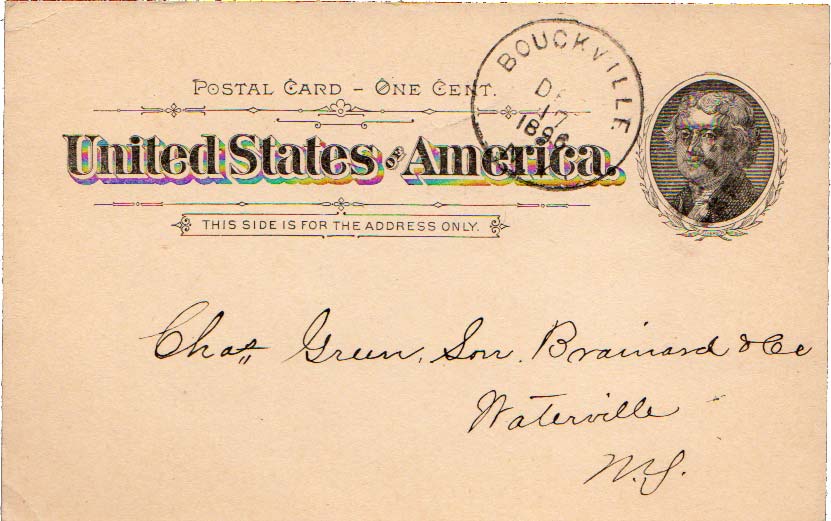 BOUCKVILLE
POSTAL CARD - ONE CENT.
17
1896
United States of America.
THIS SIDE IS FOR THE ADDRESS ONLY.
Chas Green, Son, Brainard & Co
Waterville
N.Y.